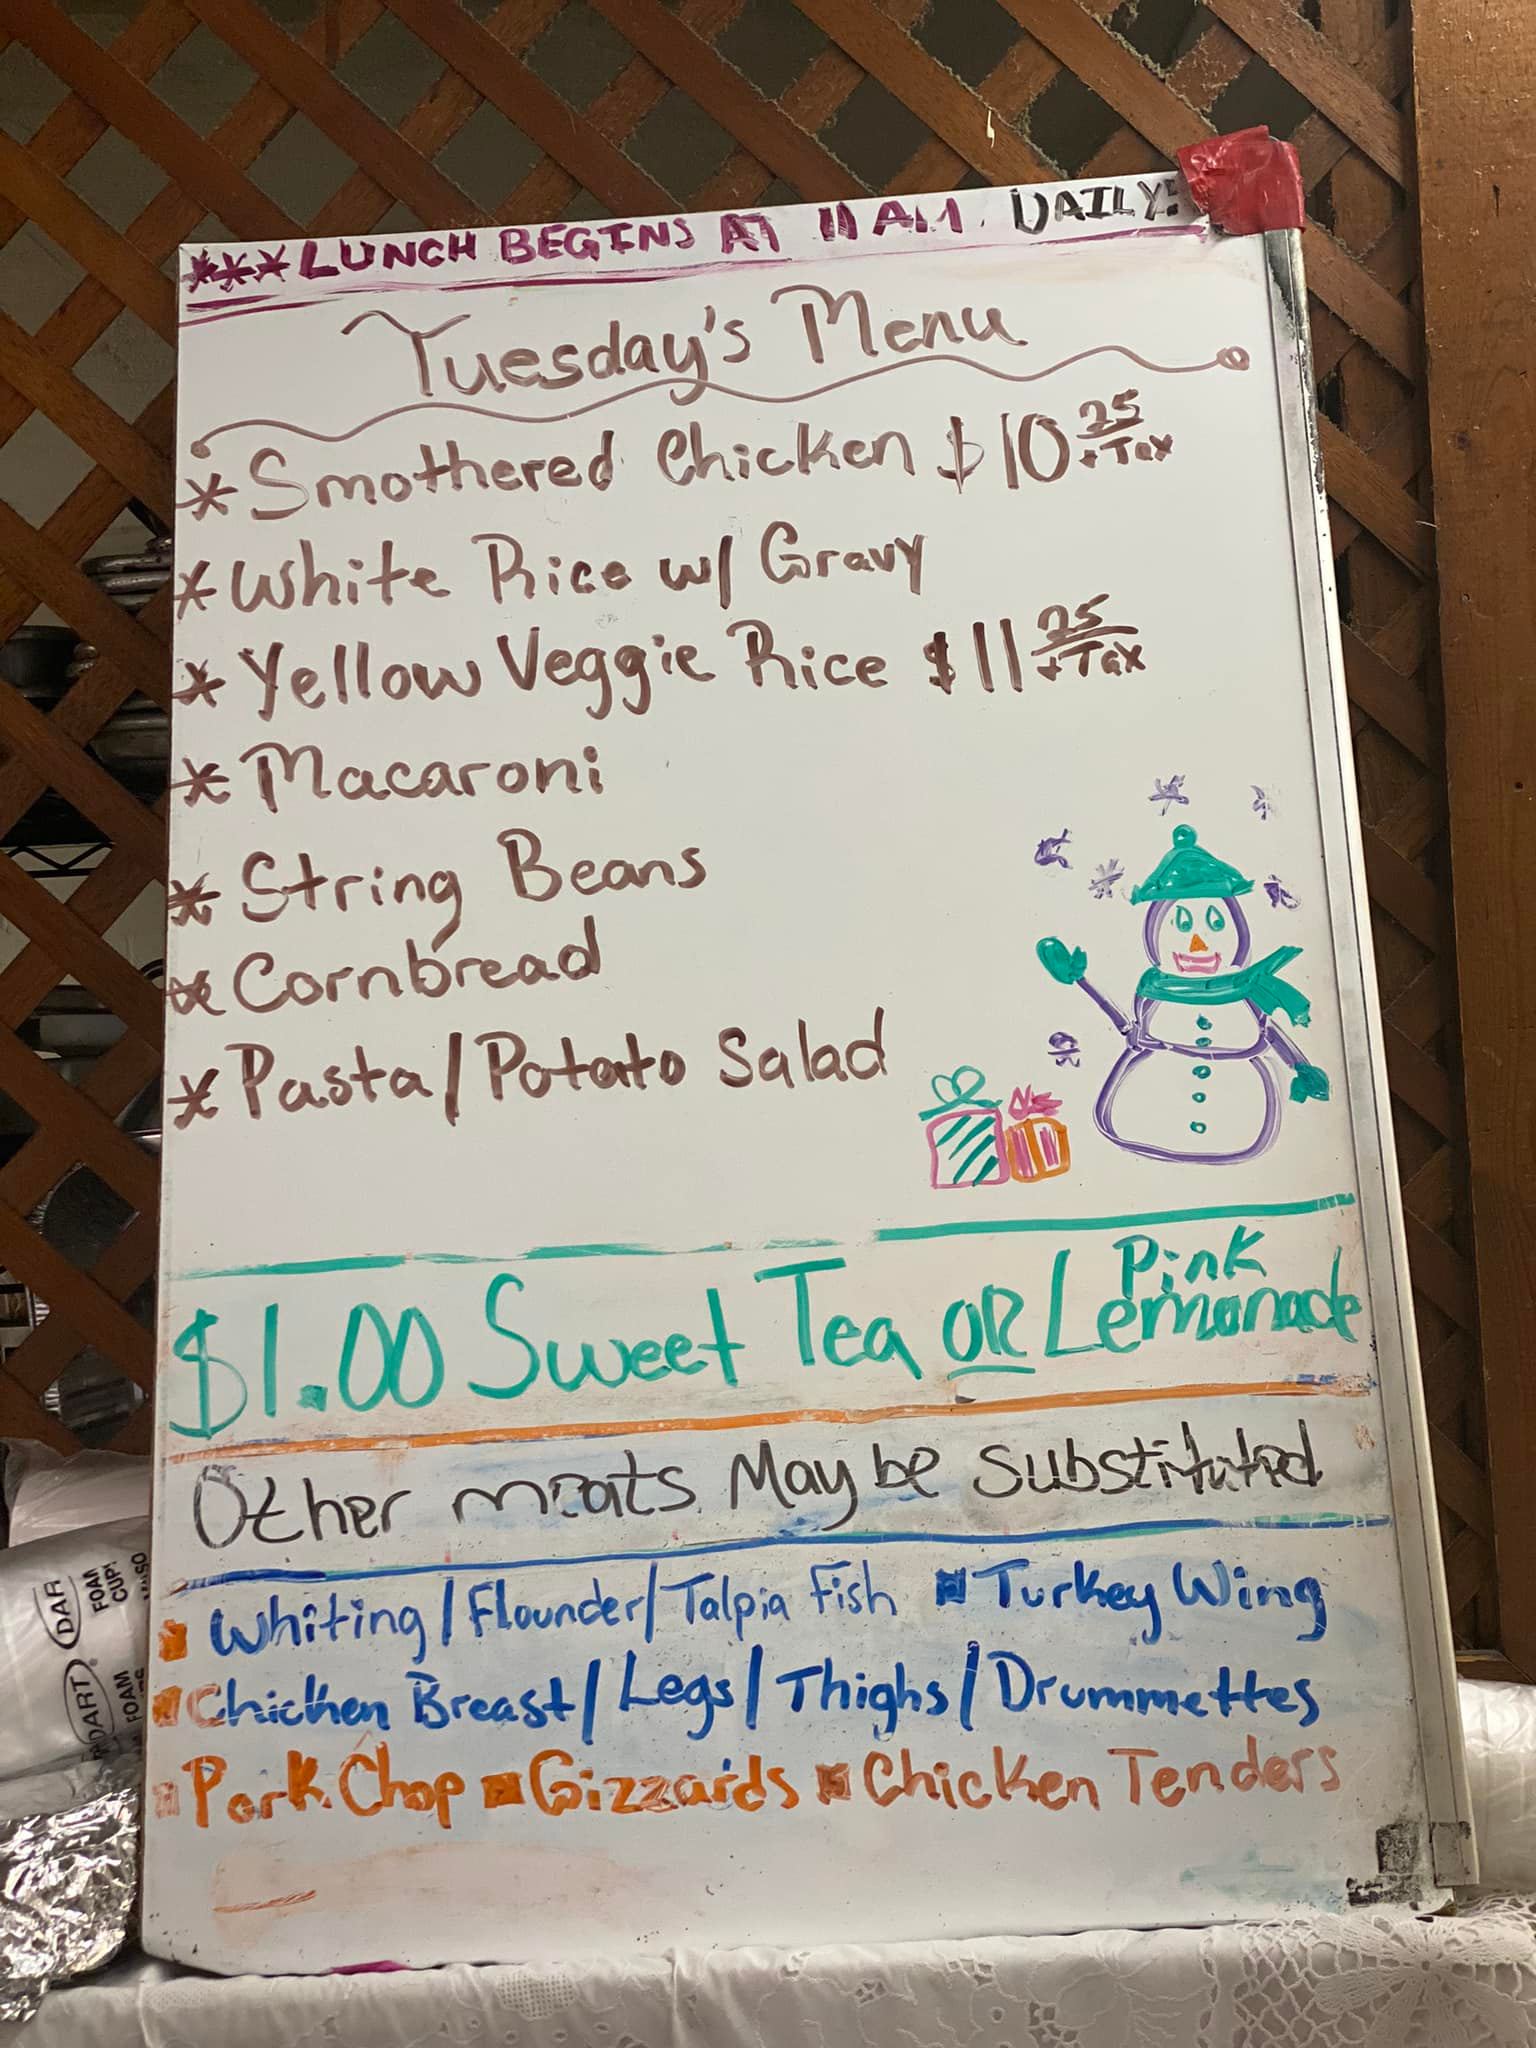 ***LUNCH BEGINS AT 11 AM. DAILY!
Tuesday's Menu
* Smothered Chicken $10 25 + Tax
* White Rice w/ Gravy
* Yellow Veggie Rice $11 25 + Tax
* Macaroni
* String Beans
* Cornbread
* Pasta/Potato Salad
$1.00 Sweet Tea OR Pink Lemonade
Other meats May be substituted
Whiting/Flounder/Talpia Fish ▪ Turkey Wing
Chicken Breast/Legs/Thighs/Drummettes
Pork Chop ▪ Gizzards ▪ Chicken Tenders
DAR
FOAM
CUPS
DART
FOAM